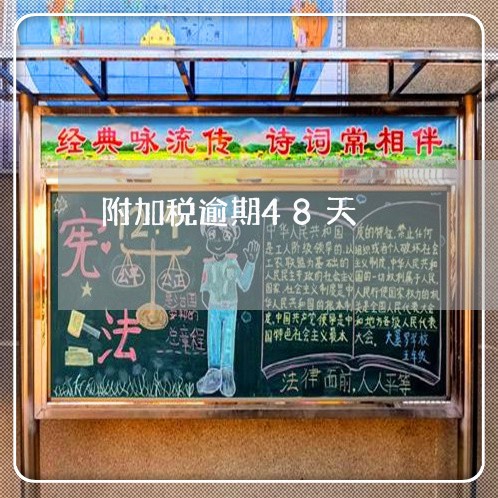 经典咏流传 诗词常相伴
附加税逾期48天
宪法
12.4
公平
公正
总章程
中华人民共和国
是工人阶级领导的,以
工农联盟为基础的
人民民主专政的社会主义
国家,社会主义制度是中
华人民共和国的根本制
度,中国共产党领导是中
国特色社会主义最本
质的特征,禁止任何
组织或者个人破坏社会
主义制度,中华人民共和
国的一切权利属于人民,
人民行使国家权力的机
关是全国人民代表大会
和地方各级人民代表
大会.
五年级
法律面前,人人平等